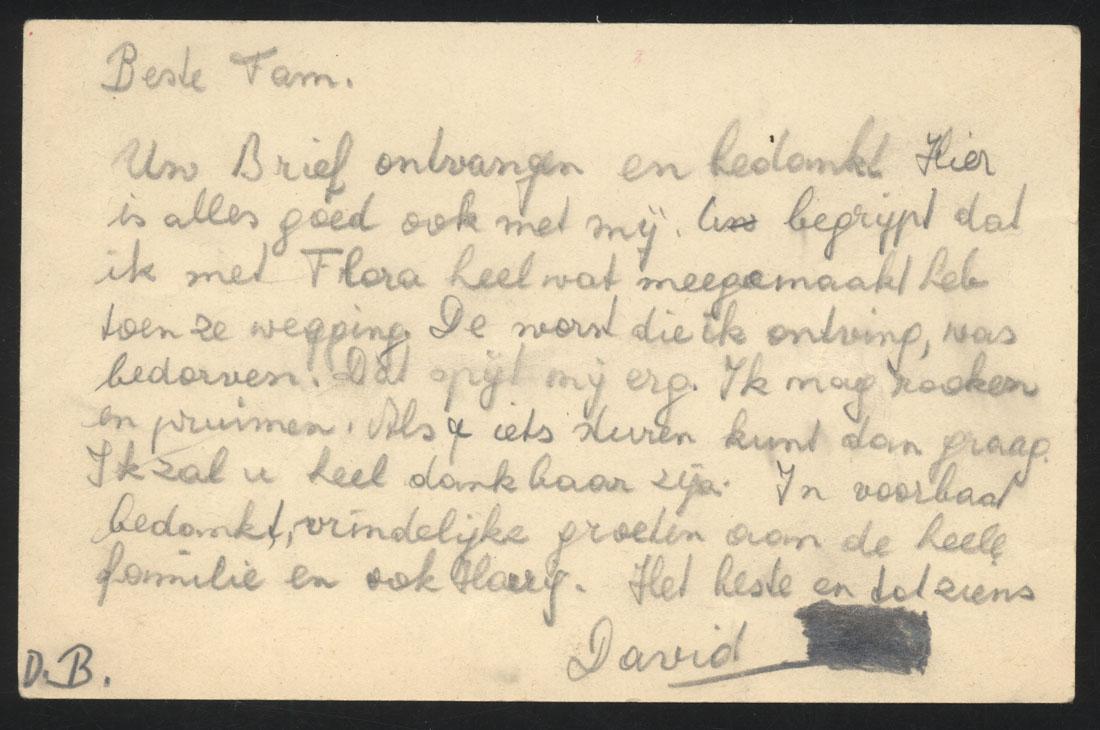 Beste Fam.
Uw Brief ontvangen en bedankt Hier
is alles goed ook met mij. Uw begrijpt dat
ik met Flora heel wat meegemaakt heb
toen ze wegging. De worst die ik ontving, was
bedorven! Dat spijt mij erg. Ik mag rooken
en pruimen. Als u iets sturen kunt dan graag.
Ik zal u heel dankbaar zijn. In voorbaat
bedankt, vrindelijke groeten aan de heele
familie en ook Harry. Het beste en tot ziens
David
D.B.